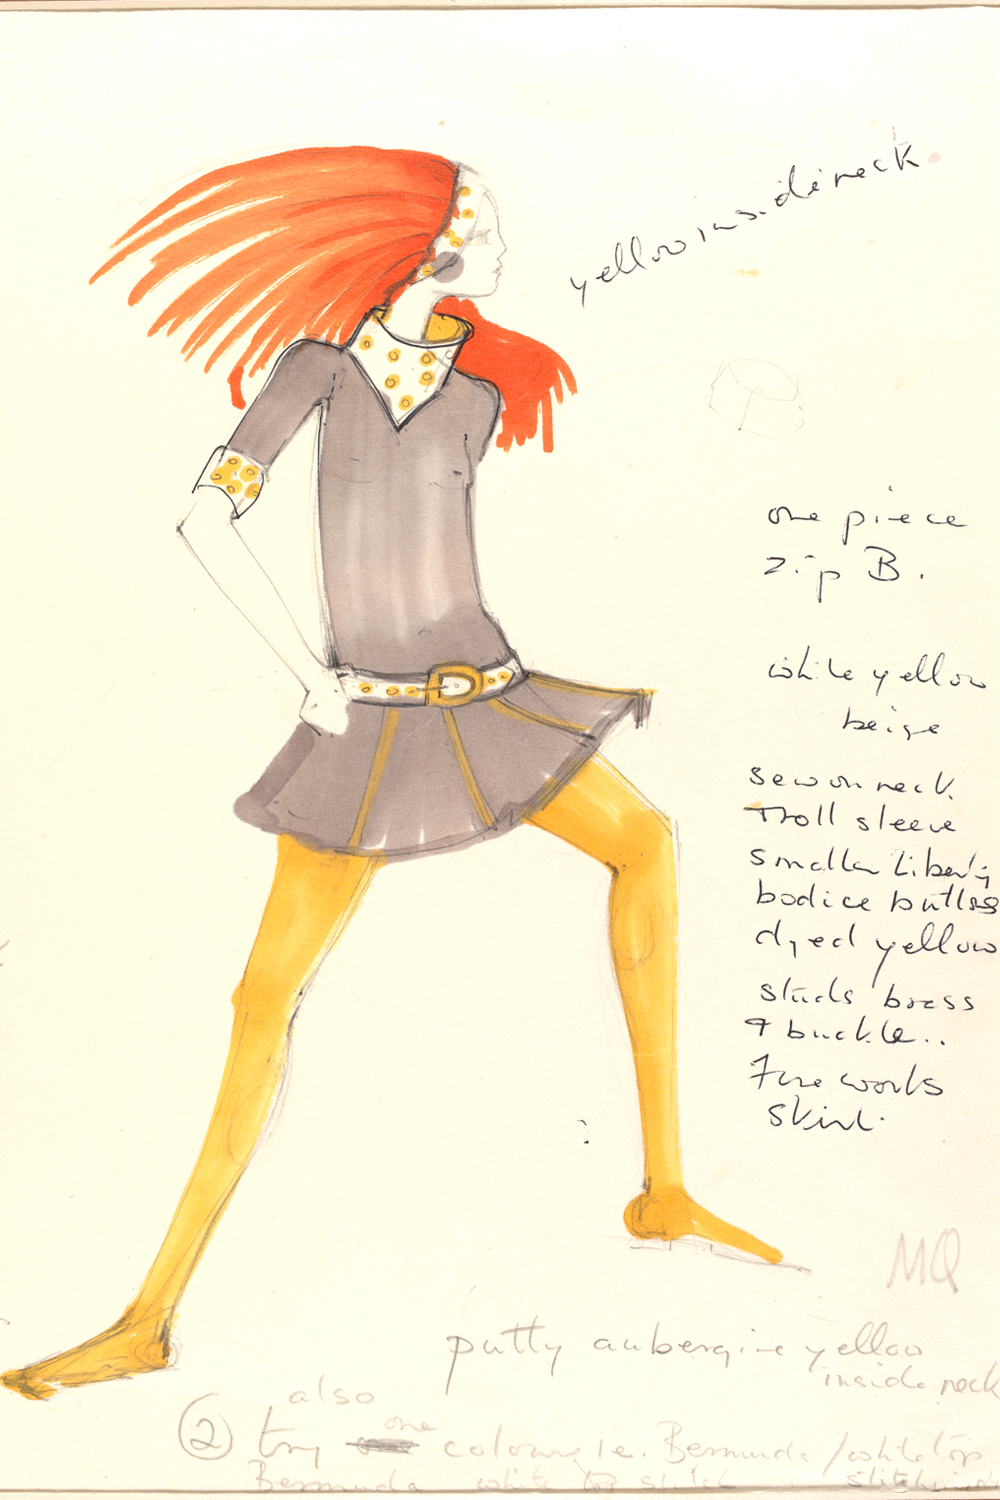 yellow inside neck
one piece
zip B.
white yellow
beige
sew on neck
roll sleeve
smaller Liberty
bodice
dyed yellow
studs brass
& buckle..
works
skirt
MQ
putty aubergine yellow
inside neck
also
② try one colour ie. Bermuda / white top
Bermuda white top stitch